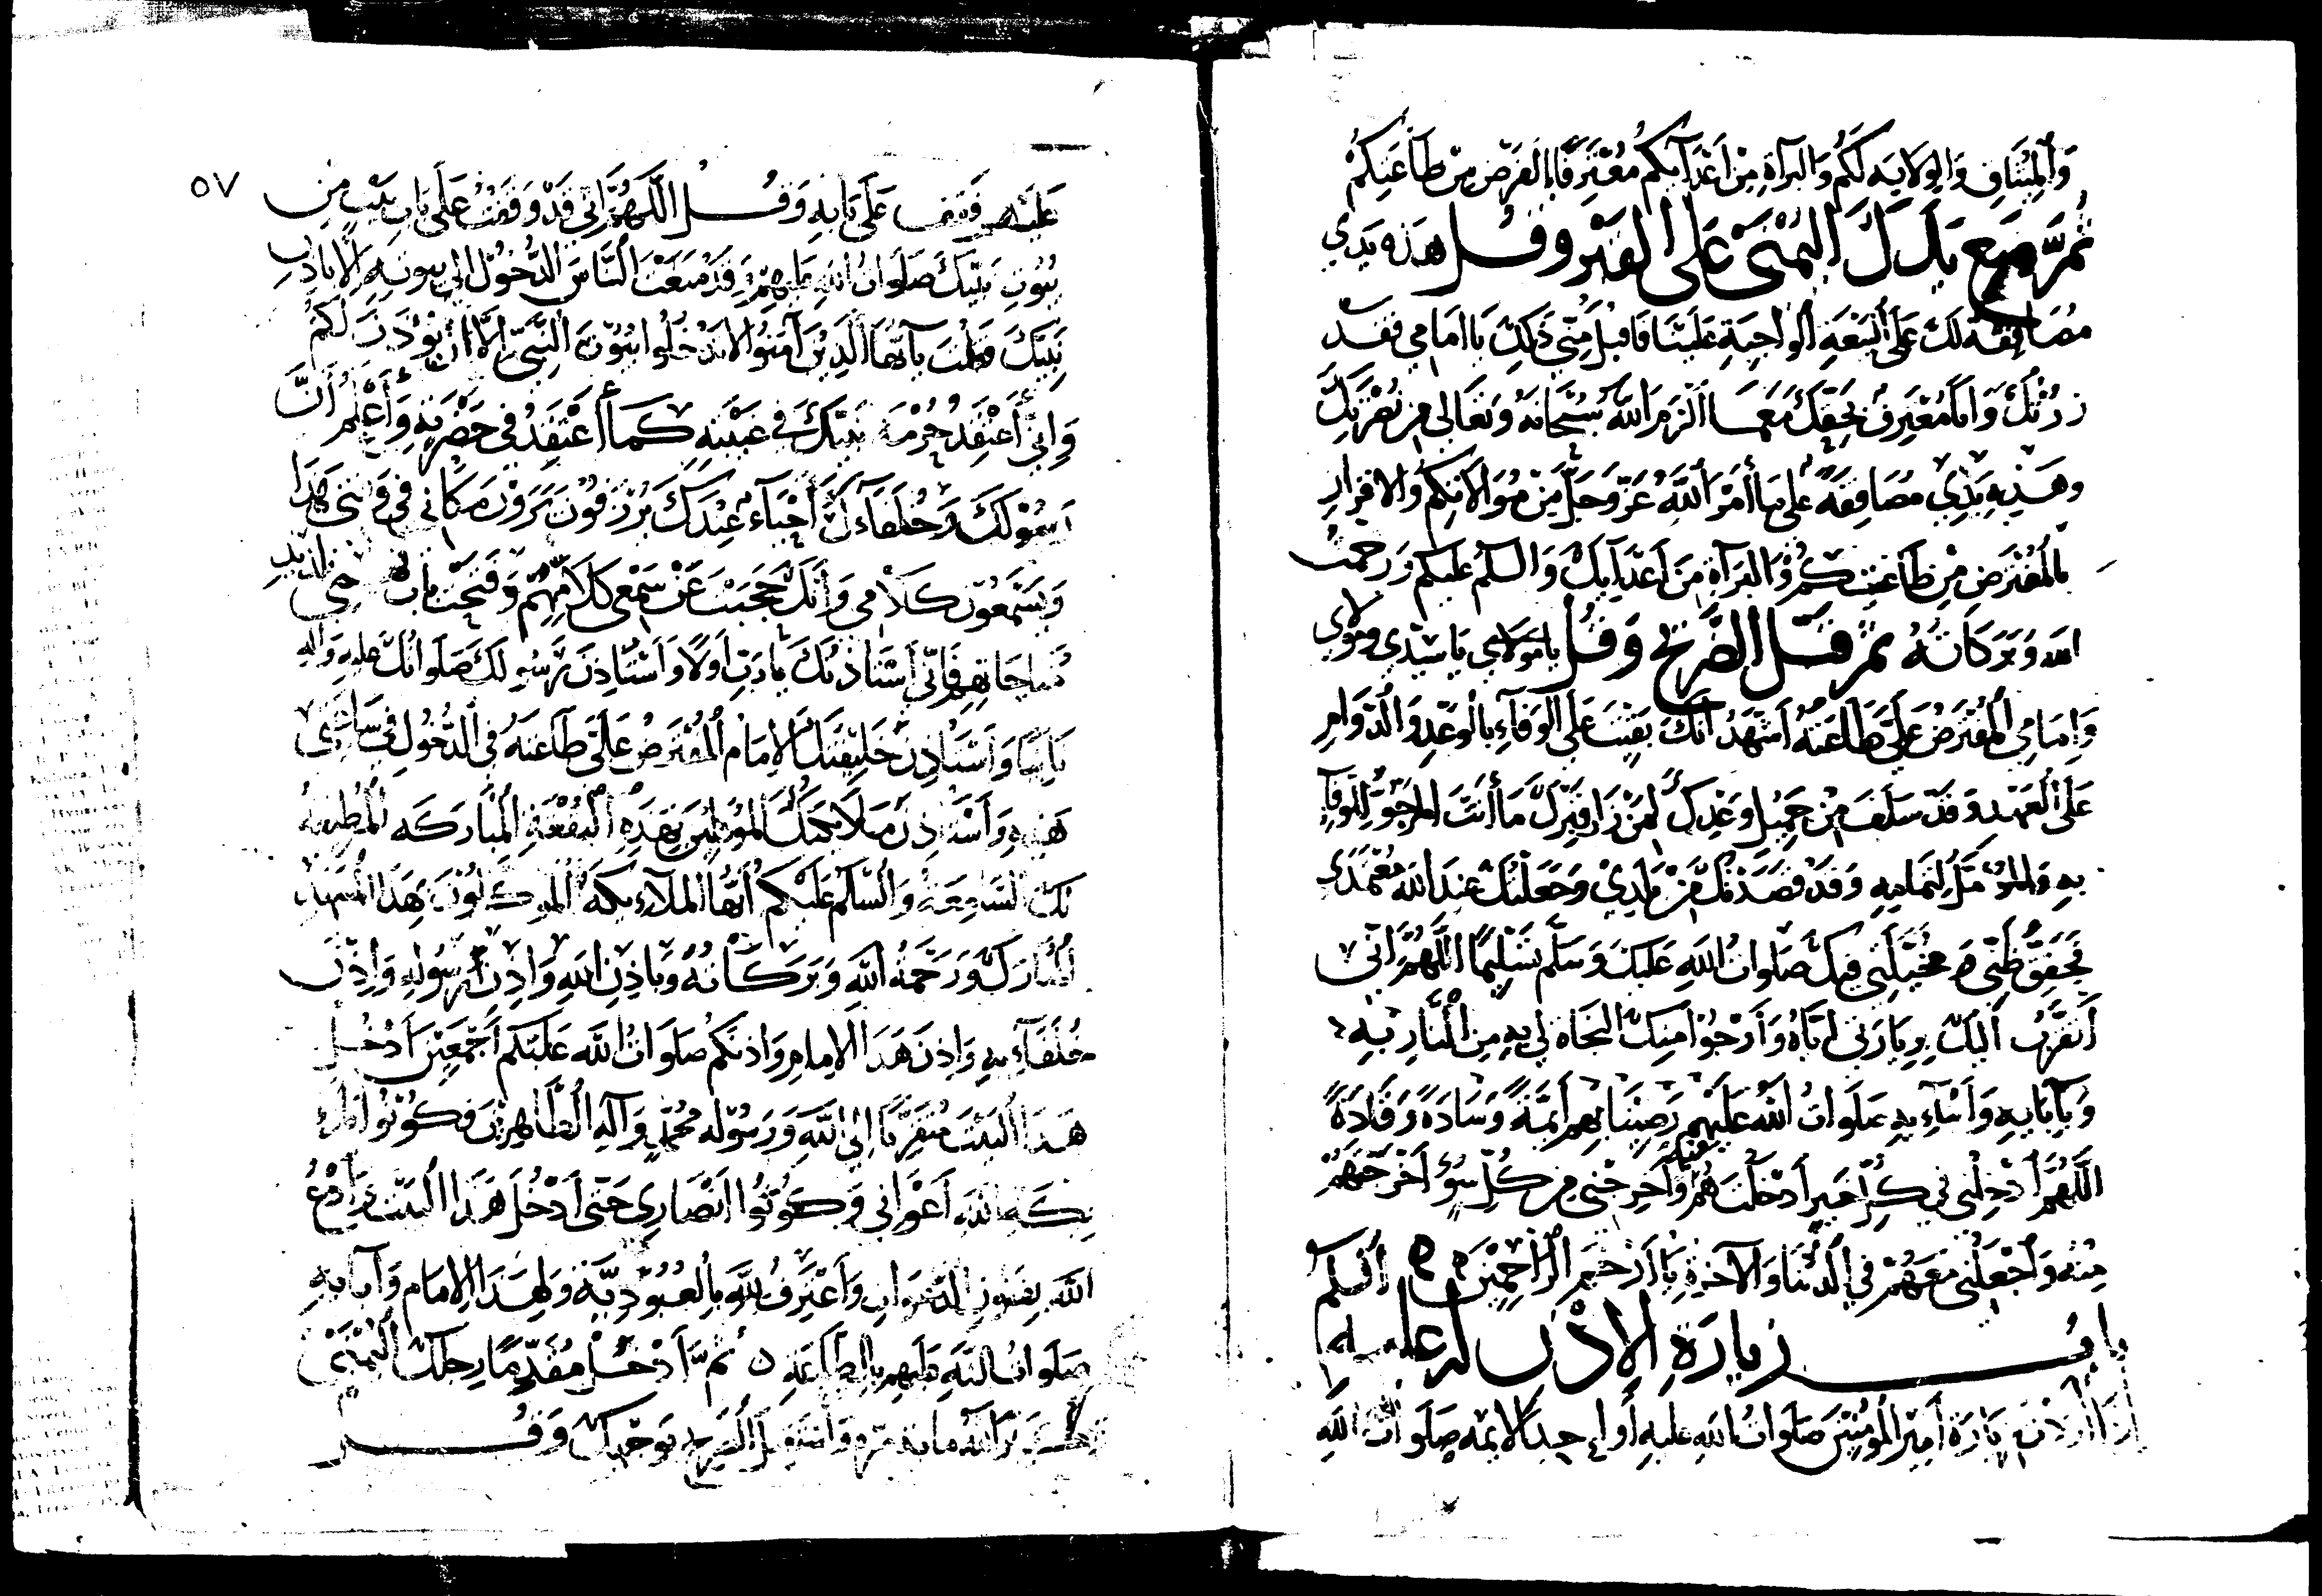 وَالْمِيثَاقِ وَالوِلَايَةِ لَكُمْ وَالبَرَآةِ مِنْ أَعْدَآيكُمْ مُعْتَرِفًا بالفَرْضِ مِن طَاعَتِكُمْ
ثُمَّ ضَع يَدَكَ اليُمْنَى عَلَى القَبْرِ وقُل هَذِهِ يَدِي
مُصَافِقَة لَكَ عَلَى الْبَيْعَةِ الْواجِبَةِ عَلَيْنَا فَاقْبَلْ مِنِّي ذَلِكَ يَا امَامِي فَقَد
زُرْتُكَ وَأنَا مُعْتَرِفٌ بِحَقِّكَ مَعَمَا أَلْزَمَ اللَّهُ سُبْحَانَهُ وَتَعَالى مِن نُصْرَتِكَ
وهَذِهِ يَدِي مُصَافِقَةً على مَا أَمَرَ اللَّهُ عَزَّ وَجَلَّ مِنْ مُوَالَاتِكُمْ والاقْرَارِ
بِالْمُفْتَرَضِ مِنْ طَاعَتِكُمْ وَالبَرَآةِ مِنَ أَعْدَآيِكَ وَالسَّلمُ عَلَيكم وَرَحمتُ
الله وَبَرَكَاتُهُ ثمَّ قَبِّل الضَّرِيحَ وَقُل يا مَوْلَايَ يَا سَيِّدِي ومَوْلاي
وَامَامِي الْمُفْتَرَضُ عَلَيَّ طَاعَتُهُ أَشْهَدُ أَنَّكَ بَقِيْتَ عَلَى الوَفَآءِ بالْوَعْدِ وَالدَّوَامِ
عَلَى الْعَهْدِ وَقَدْ سَلَفَ مِنْ جَمِيْلِ وَعْدِكَ لِمَنْ زَارَ قَبْرَكَ مَا أَنْتَ المَرْجُوُّ لِلْوَفَآءِ
بِهِ وَالمُؤَمَّلُ لِتَمَامِهِ وَقَدْ قَصَدْتُكَ مِنْ بَلَدِيْ وَجَعَلْتُكَ عِنْدَ اللَّهِ مُعْتَمَدِي
فَحَقِّقْ ظَنِّي وَ مُخَيَّلَتِي فِيكَ صَلَوَاتُ اللَّهِ عَلَيْكَ وَسَلَّمَ تَسْلِيمًا اللَّهُمَّ إنِّي
أَتَقَرَّبُ الَيْكَ بِزِيَارَتِي ايَّاهُ وَأَرْجُوا مِنْكَ النَجَاةَ لِي بِهِ مِنَ النَّارِ بِهِ
وَبِآبَايِهِ وَأَبْنَآءِيهِ صَلَوَاتُ اللَّهِ عَلَيْهِم رَضِيْنَا بِهِم أَيِمَّةً وَسَادَةً وَقَادَةً
اللَّهُمَّ أَدْخِلْنِي فِي كُلِّ خَيرٍ أَدْخَلْتَهُمْ فِيهِ وَأَخرِجْنِي مِن كُلِّ سُوءٍ أَخْرَجْتَهُمْ
مِنْهُ وَاجْعَلْنِي مَعَهُمْ فِي الدُّنْيَا وَالآخِرَةِ يَا أَرْحَمَ الرَّاحِمِيْنَ
بابُ زِيَارَةِ الاِذْنِ
اذَا أَرَدْتَ زِيَارَةَ أَمِيْرِ الْمُومِنِيْنَ صَلَوَاتُ اللهِ عليهِ أَو احدِ الايمَّه صَلَوَاتُ اللَّهِ
٥٧
عَلَيْهِم فَقِف عَلَى بَابِهِ وَقُل اللَّهُمَّ إنِّي قَدْ وَقَفْتُ عَلَى بَابِ بَيْتٍ مِن
بُيُوتِ نَبِيِّكَ صَلَوَاتُ اللهِ عَلَيْهِم وَقَدْ مَنَعْتَ النَّاسَ الدُّخُوْلَ الى بيوتِهِ إلَّا بِاذنِ
نَبِيِّكَ فَقُلْتَ يآ أَيُّهَا الَّذِينَ آمَنُوا لا تَدْخُلُوا بُيُوْتَ النَّبِيِّ إلَّا انْ يُؤْذَنَ لَكُمْ
وَإنِّي أَعْتَقِدُ حُرْمَةَ نَبِيِّكَ في غَيْبَتِهِ كَمَا أَعْتَقِدُ فِي حَضْرَتِهِ وَأَعْلَمُ أَنَّ
رَسُوْلَكَ وَخُلَفَآءَكَ أَحْيَآءٌ عِنْدَكَ يُرْزَقُونَ يَرَوْنَ مَكَانِي فِي وَقْتِي هَذَا
وَيَسْمَعُوْنَ كَلَامِي وَأَنَّكَ حَجَبْتَ عَنْ سَمْعِي كَلَامَهُمْ وَفَتَحْتَ بَابَ
مُنَاجَاتِهِم فَإنِّي أَسْتَاذِنُكَ يَا رَبِّ أَوَّلًا وَأَسْتَاذِنُ رَسُولَكَ صَلَوَاتُكَ عَلَيهِ وَآلهِ
ثَانِيًا وَأَسْتَاذِنُ خَلِيفَتَكَ الامَامَ الْمُفْتَرَضُ عَلَيَّ طَاعَتُهُ فِي الدُّخُوْلِ فِي سَاعَتِي
هَذِهِ وَأَسْتَاذِنُ مَلَايِكَتَكَ الْمُوَكَّلِينَ بِهَذِهِ الْبُقْعَةِ الْمُبَارَكَه الْمُطِيعَةِ
لَكَ السَّامِعَةِ وَالسَّلمُ عَلَيْكُمْ أَيُّهَا الْمَلَآءِيكَةُ الْمُوَكَّلُوْنَ بِهَذَا الْمَشْهَدِ
الْمُبَارَكِ وَرَحْمَةُ اللهِ وَبَرَكَاتُهُ وَبِاذِنِ اللهِ وَاذِنِ رَسُولِهِ وَاذِنِ
خُلَفَآءِيهِ وَاذِنِ هَذَا الامامِ وَاذنِكُم صَلَوَاتُ اللَّهِ عَلَيْكُم أَجْمَعِيْنَ أَدْخُلُ
هَذَا الْبَيْتَ مُتَقَرِّبًا إلى اللَّهِ وَرَسُوْلِهِ مُحَمَّدٍ وَآلِهِ الطَّاهِرِيْنَ فَكُوْنُوا
اللهِ أَعْوَانِي وَكُوْنُوا أَنْصَارِي حَتَّى أَدْخُلَ هَذَا الْبَيْتَ وَأَدْعُ
اللَّهَ بِفُنُونِ الدَّعَوَاتِ وَأَعْتَرِفُ للهِ بِالْعُبُوْدِيَّةِ وَلِهَذَا الامَامِ وَآبَايِهِ
صَلَوَاتُ اللَّهِ عَلَيهِم بِالطَّاعَةِ ثُمَّ أَدْخُلْ مُقَدِّمًا رِجْلَكَ الْيُمْنَى
وَقُل